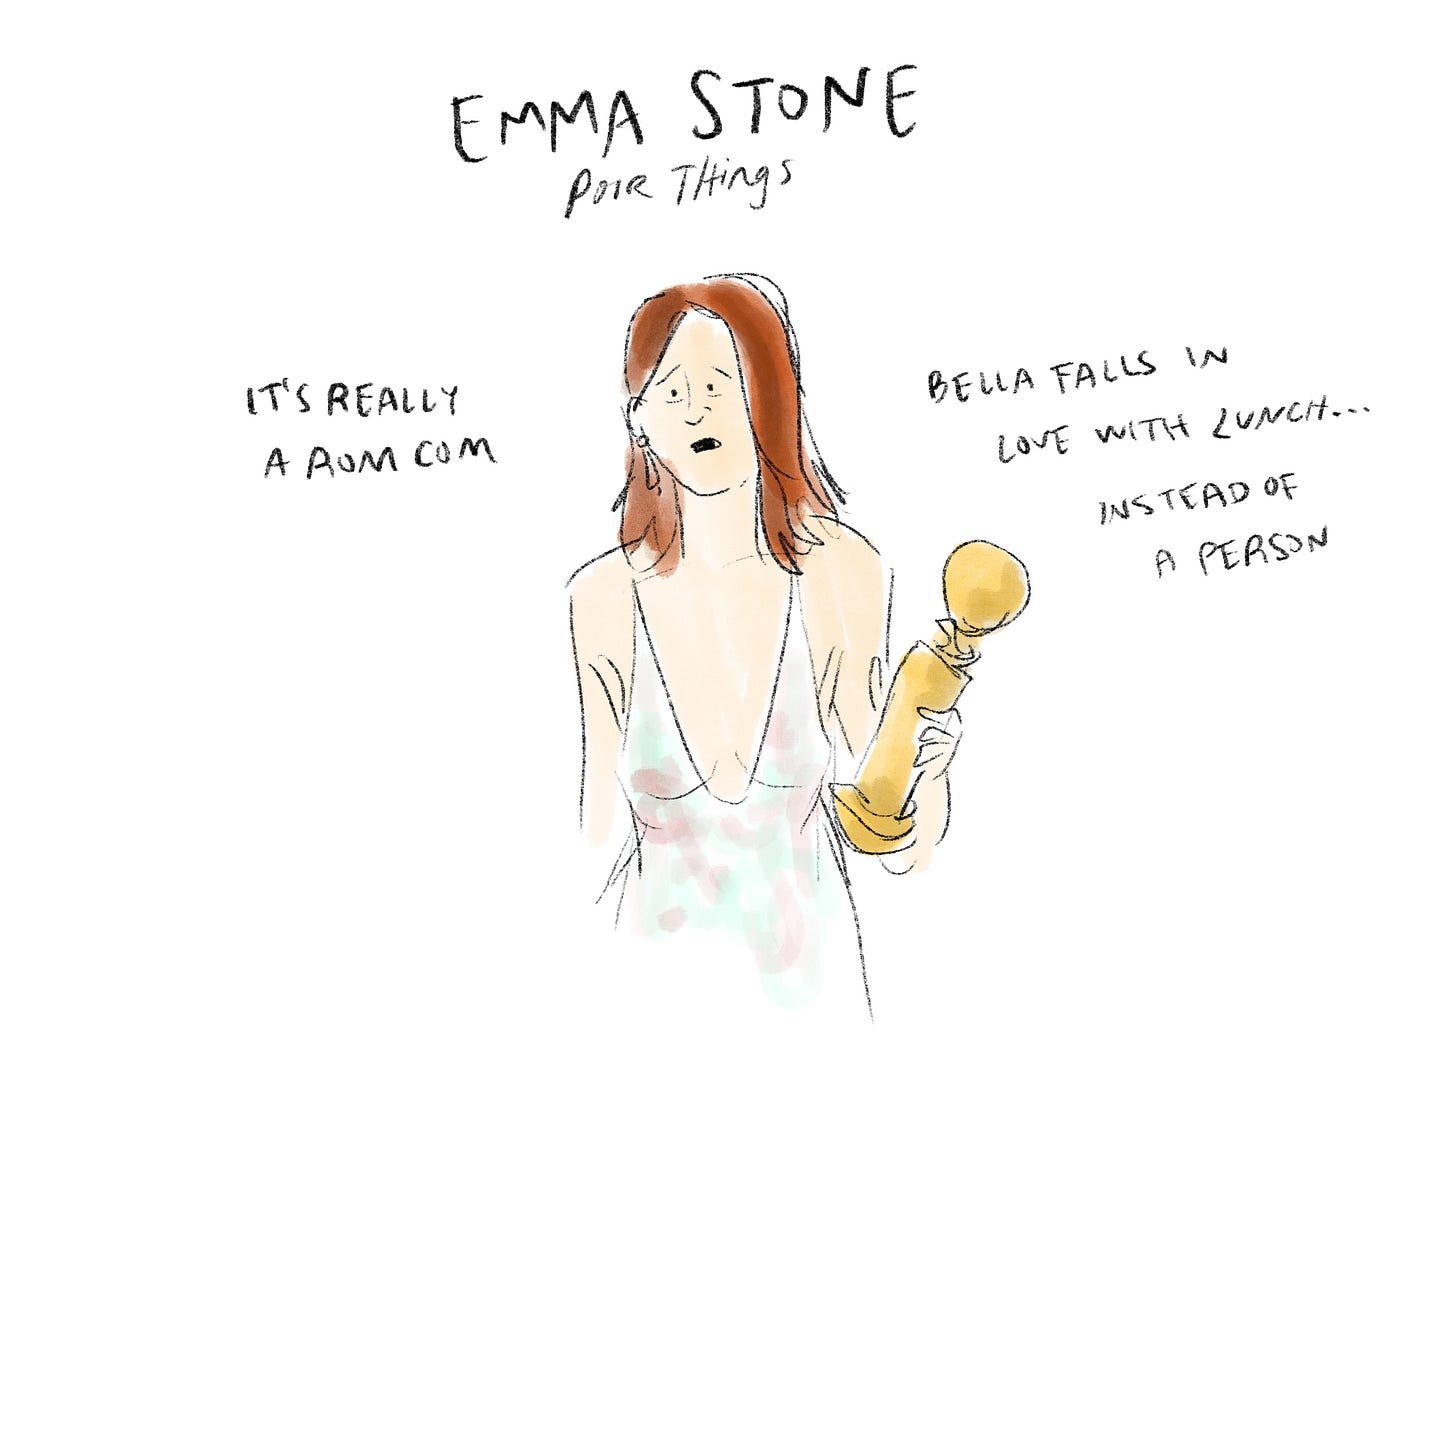 EMMA STONE
Poor Things
IT'S REALLY
A ROM COM
BELLA FALLS IN
LOVE WITH LUNCH...
INSTEAD OF
A PERSON